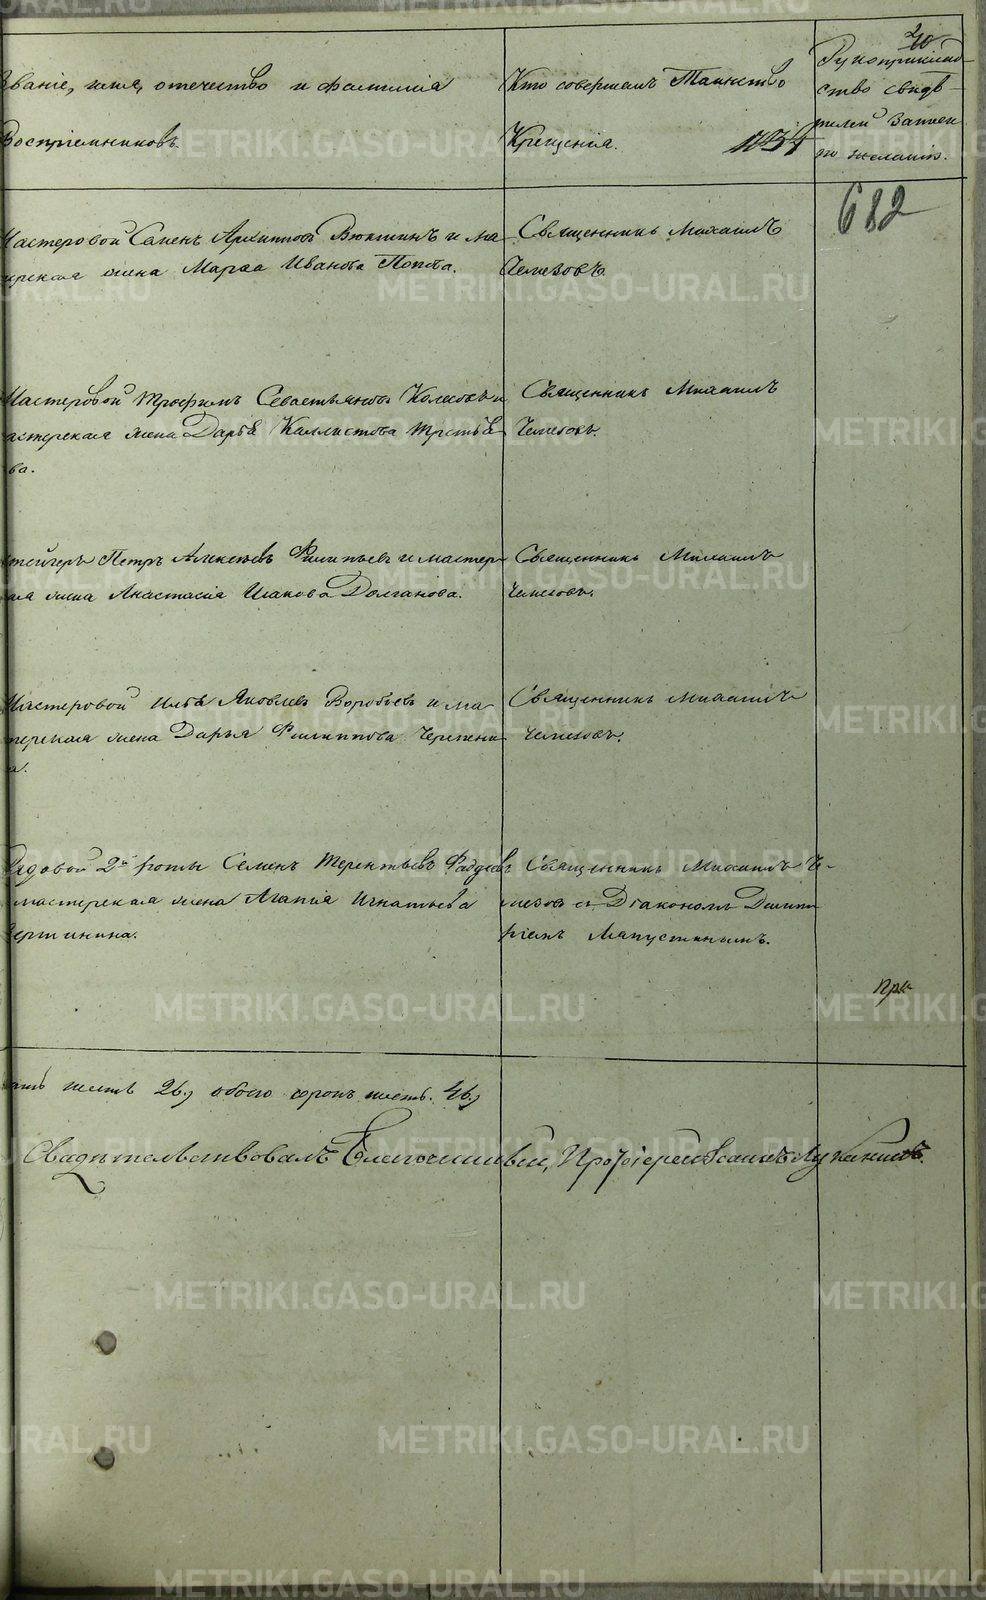 Званіе, имя, отечество и фамилія
Воспріемниковъ.
Кто совершалъ Таинство
Крещенія.
Рукоприклад-
ство свидѣ-
телей записи
по желанію.
682
Мастеровой Семенъ Архиповъ Вяткинъ и ма
терская жена Марѳа Иванова Попова.
Священникъ Михаилъ
Чемезовъ.
Мастеровой Трофимъ Севастьяновъ Колясовъ и
мастерская жена Дарья Каллистова Третьяко
ва.
Священникъ Михаилъ
Чемезовъ.
Штейгеръ Петръ Алексѣевъ Филипьевъ и мастер
ская жена Анастасія Исакова Долганова.
Священникъ Михаилъ
Чемезовъ.
Мастеровой Илья Яковлевъ Воробьевъ и ма
терская жена Дарья Филиппова Черепени
а.
Священникъ Михаилъ
Чемезовъ.
Рядовой 2й роты Семенъ Терентьевъ Фадѣевъ
мастерская жена Агапія Игнатьева
Священникъ Михаилъ Че-
мезовъ съ Діакономъ Димит
ріемъ Ляпустинымъ.
при
женъ 26, обоего сорокъ шесть. 46,
Свидѣтельствовалъ Благочинный, Протоіерей Іоаннъ Луканинъ.
METRIKI.GASO-URAL.RU